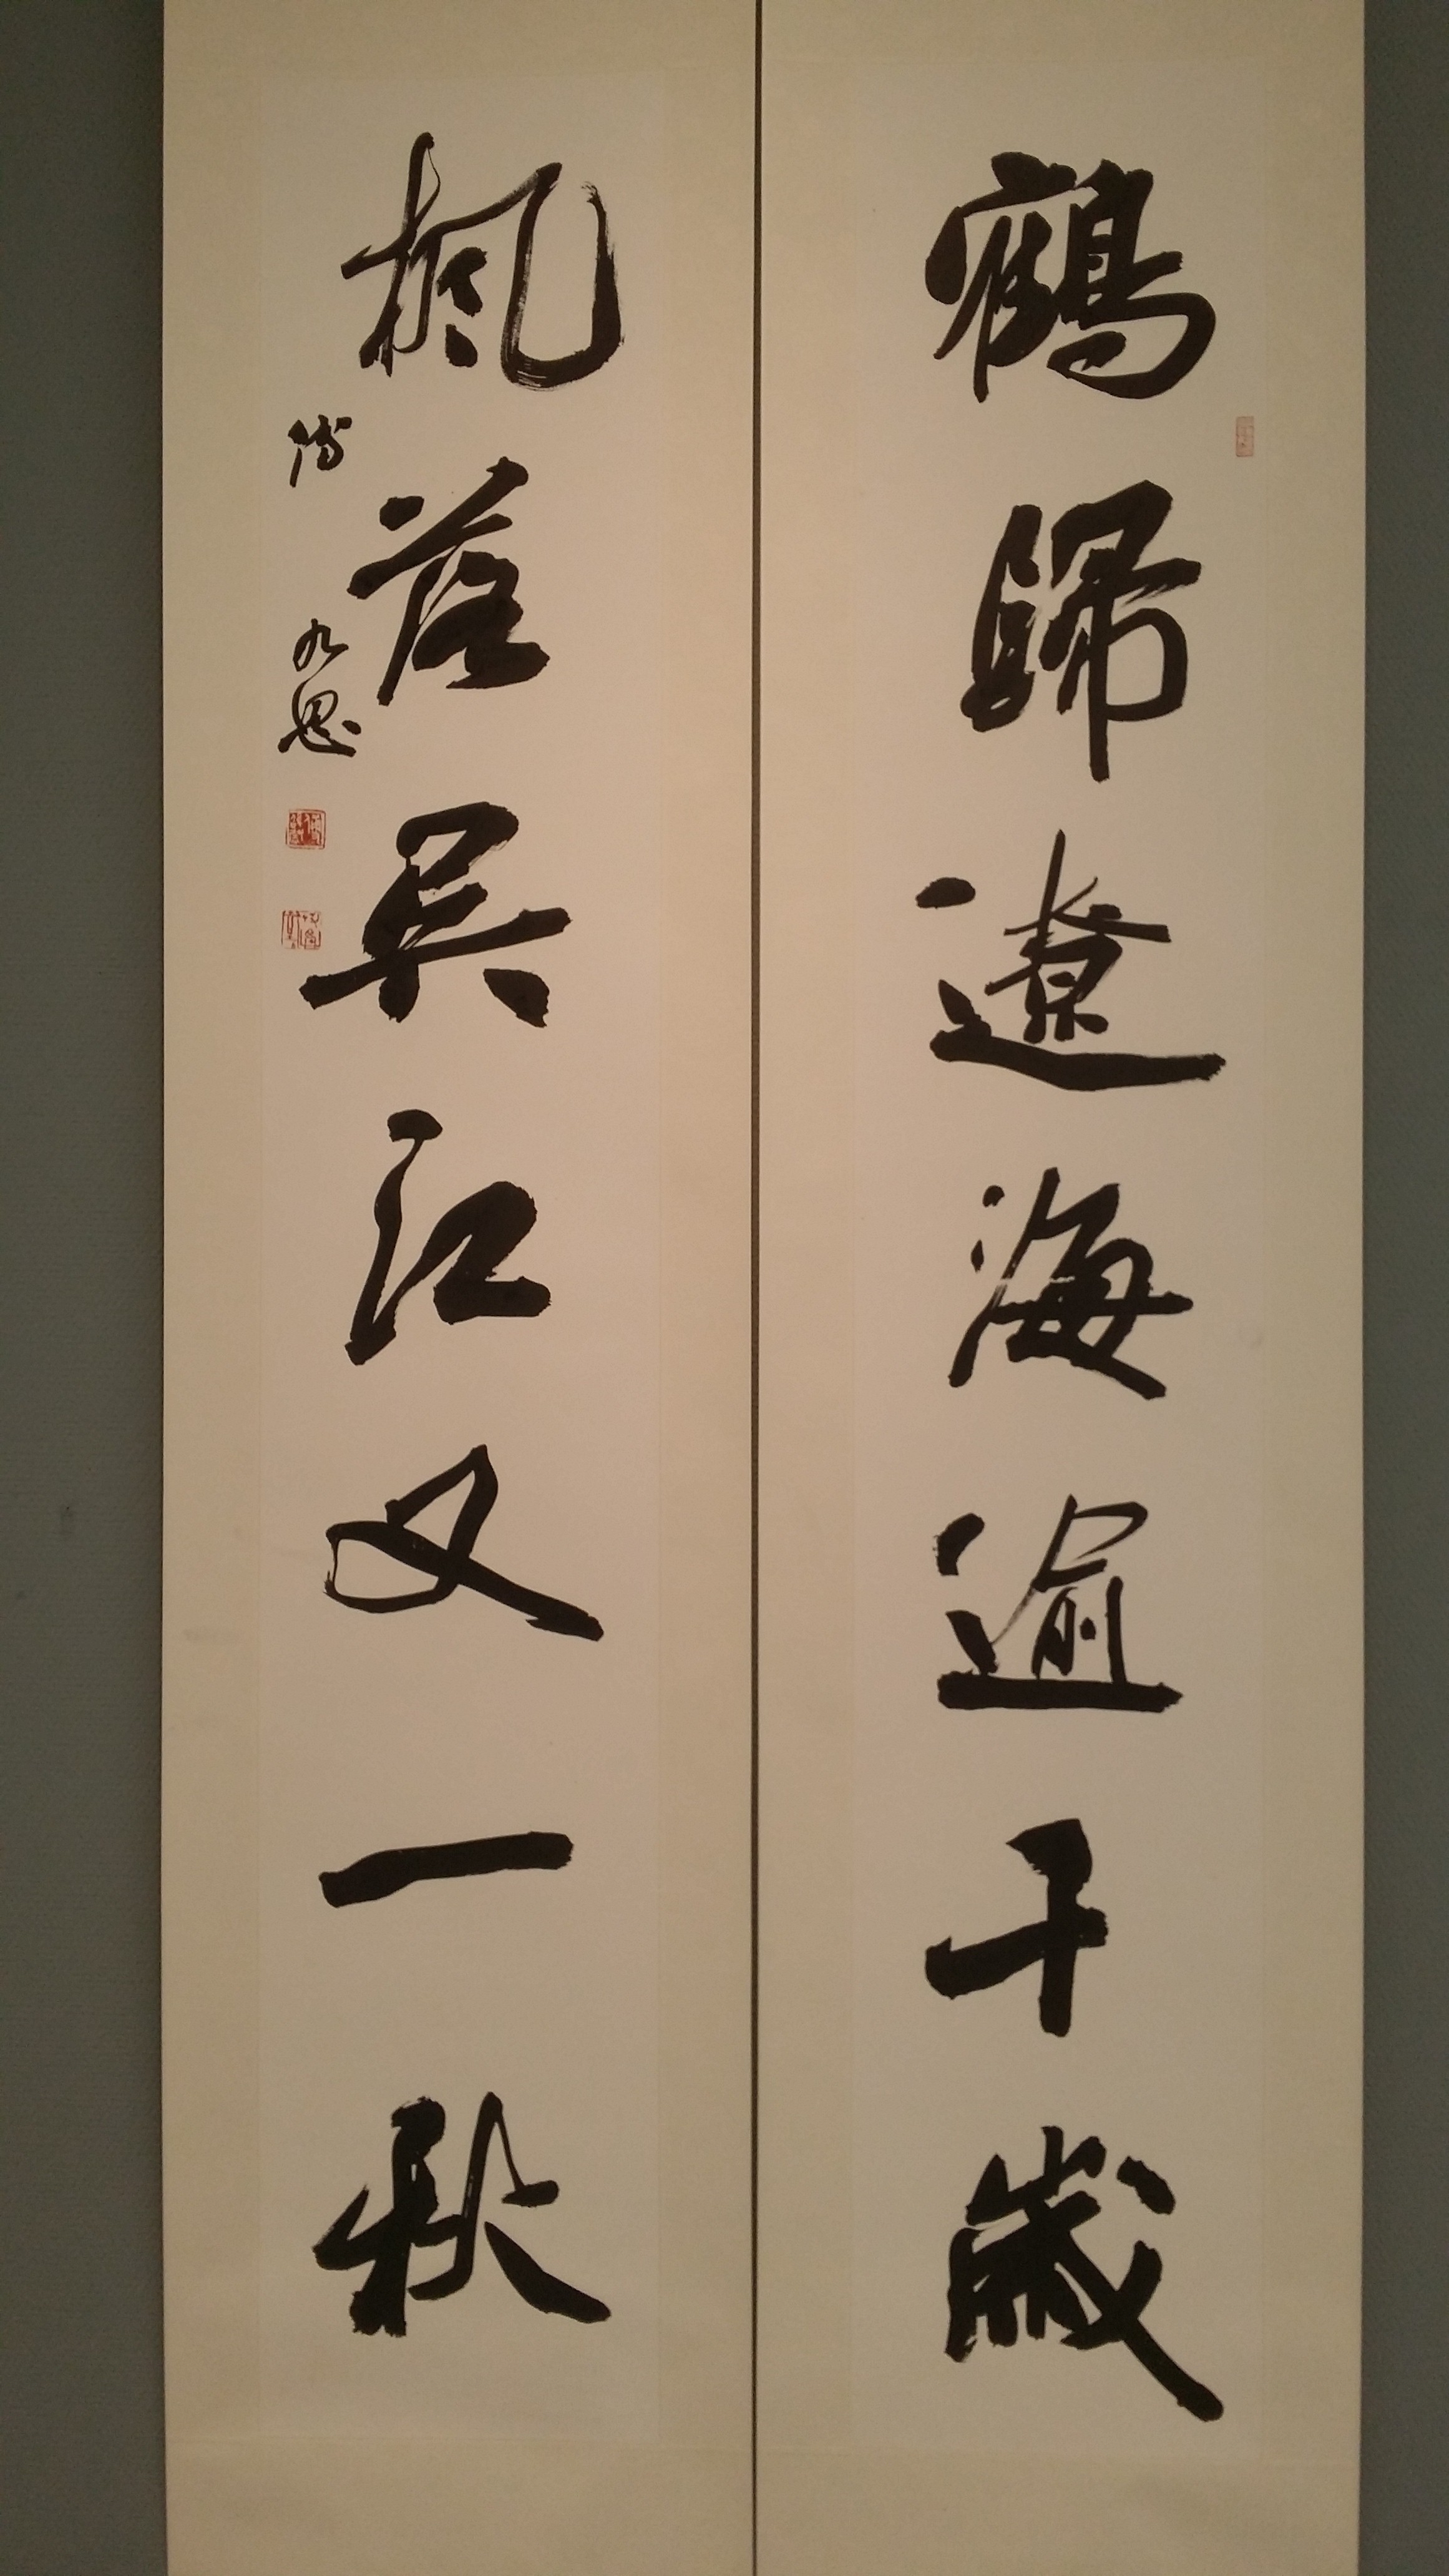 鶴歸遼海逾千歲
楓落吳江又一秋
傅 九思